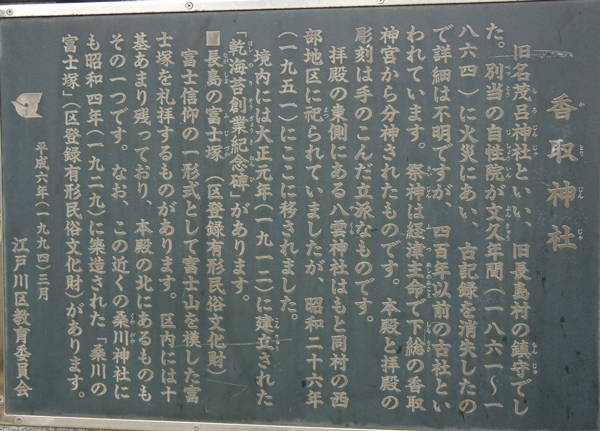 香取神社
旧名茂呂神社といい、旧長島村の鎮守でし
た。別当の自性院が文久年間（一八六一〜一
八六四）に火災にあい、古記録を消失したの
で詳細は不明ですが、四百年以前の古社とい
われています。祭神は経津主命で下総の香取
神宮から分神されたものです。本殿と拝殿の
彫刻は手のこんだ立派なものです。
拝殿の東側にある八雲神社はもと同村の西
部地区に祀られていましたが、昭和二十六年
（一九五一）にここに移されました。
境内には大正元年（一九一二）に建立された
「乾海苔創業紀念碑」があります。
■長島の富士塚（区登録有形民俗文化財）
富士信仰の一形式として富士山を模した富
士塚を礼拝するものがあります。区内には十
基あまり残っており、本殿の北にあるものも
その一つです。なお、この近くの桑川神社に
も昭和四年（一九二九）に築造された「桑川の
富士塚」（区登録有形民俗文化財）があります。
平成六年（一九九四）三月
江戸川区教育委員会